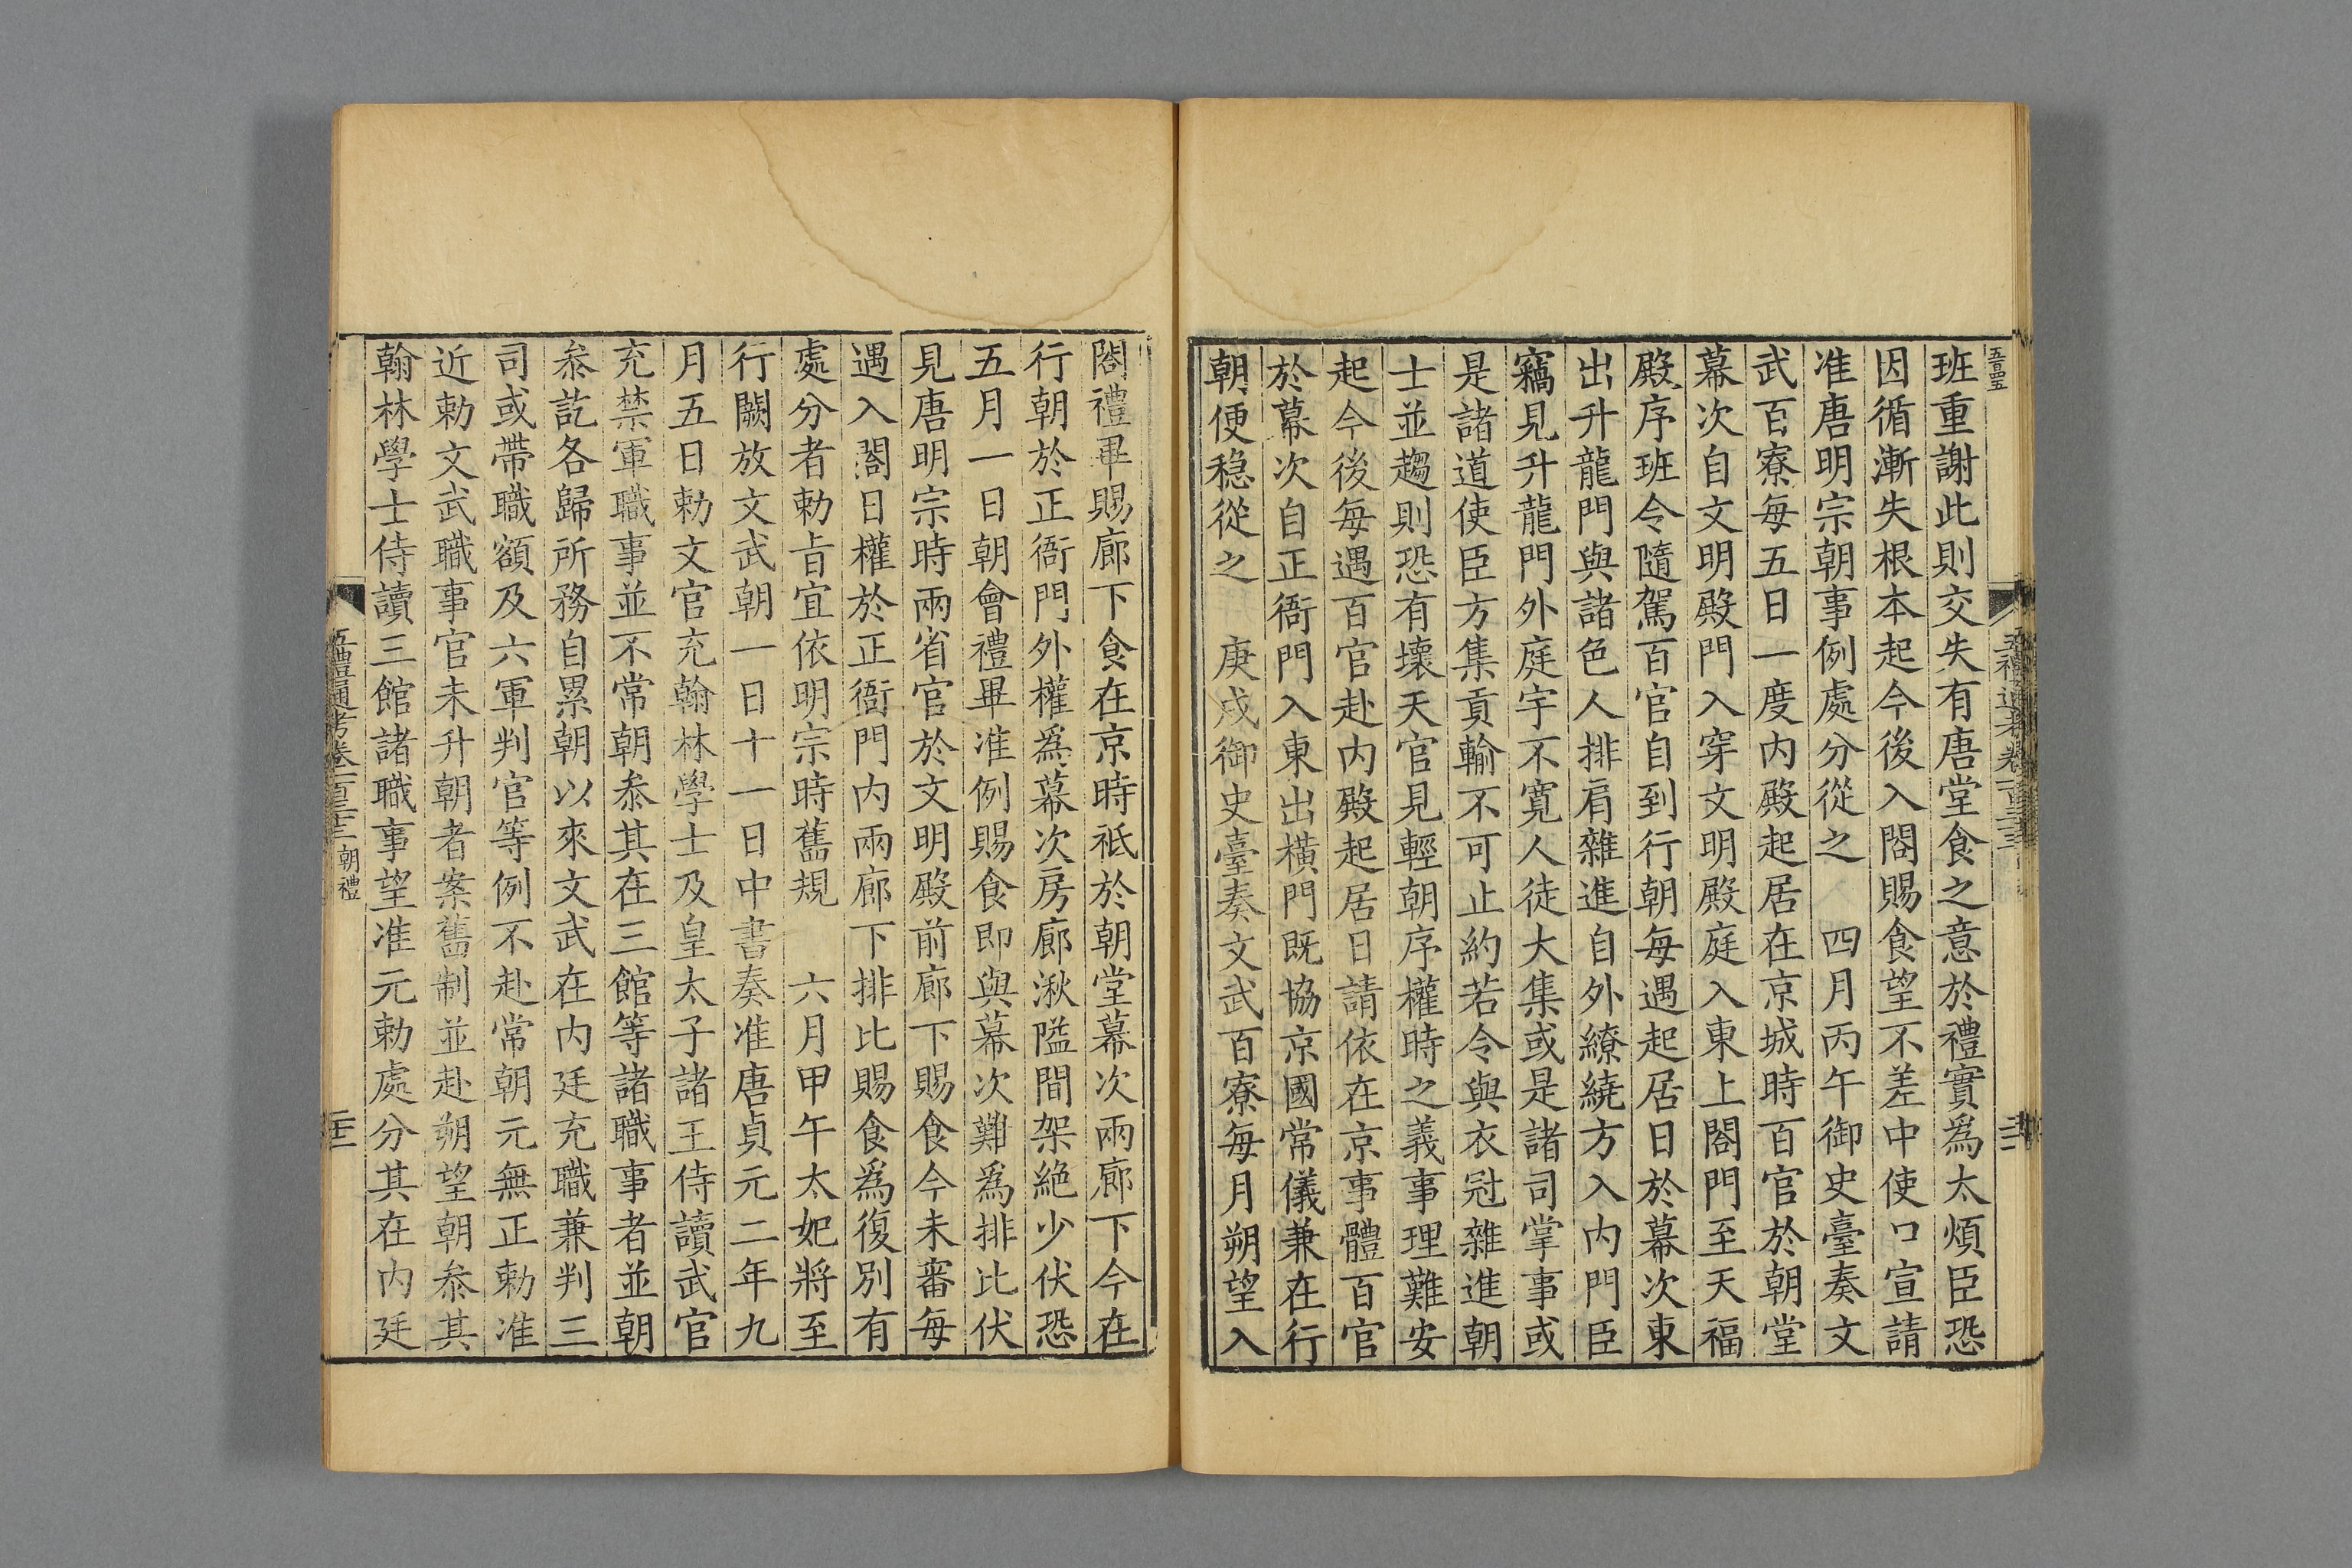 五百四五
班重謝此則交失有唐堂食之意於禮實爲太煩臣恐
因循漸失根本起今後入閤賜食望不差中使口宣請
准唐明宗朝事例處分從之　四月丙午御史臺奏文
武百寮每五日一度內殿起居在京城時百官於朝堂
幕次自文明殿門入穿文明殿庭入東上閤門至天福
殿序班令隨駕百官自到行朝每遇起居日於幕次東
出升龍門與諸色人排肩雜進自外繚繞方入內門臣
竊見升龍門外庭宇不寬人徒大集或是諸司掌事或
是諸道使臣方集貢輸不可止約若令與衣冠雜進朝
士並趨則恐有壞天官見輕朝序權時之義事理難安
起今後每遇百官赴內殿起居日請依在京事體百官
於幕次自正衙門入東出橫門既協京國常儀兼在行
朝便穩從之　庚戌御史臺奏文武百寮每月朔望入
閤禮畢賜廊下食在京時祗於朝堂幕次兩廊下今在
行朝於正衙門外權爲幕次房廊湫隘間架絕少伏恐
五月一日朝會禮畢准例賜食即與幕次難爲排比伏
見唐明宗時兩省官於文明殿前廊下賜食今未審每
遇入閤日權於正衙門內兩廊下排比賜食爲復別有
處分者勅旨宜依明宗時舊規　六月甲午太妃將至
行闕放文武朝一日十一日中書奏准唐貞元二年九
月五日勅文官充翰林學士及皇太子諸王侍讀武官
充禁軍職事並不常朝叅其在三館等諸職事者並朝
叅訖各歸所務自累朝以來文武在內廷充職兼判三
司或帶職額及六軍判官等例不赴常朝元無正勅准
近勅文武職事官未升朝者案舊制並赴朔望朝叅其
翰林學士侍讀三館諸職事望准元勅處分其在內廷
五禮通考卷一百三十三 朝禮